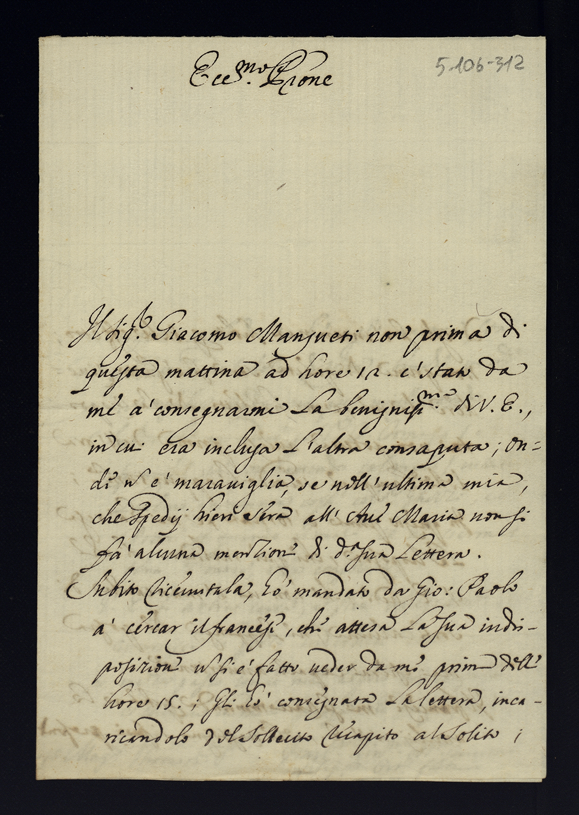 Ecc.mo Prone
5-106-312
Il Sig.r Giacomo Mansueti non prima di
questa mattina ad hore 12. è stato da
me à consegnarmi la benigniss.ma di V. E.,
in cui era inclusa l'altra consaputa; on=
de n è maraviglia, se nell'ultima mia,
che spedij hieri sera all' Ave Maria non si
fà alcuna mentione di d.a sua lettera.
Subito ricevutala, hò mandato da Gio: Paolo
à cercar il francese, che attesa la sua indis-
posizione n si è fatto veder da me prima dell'
hore 15.; Gli hò consegnata la lettera, inca-
ricandolo del sollecito ricapito al solito;